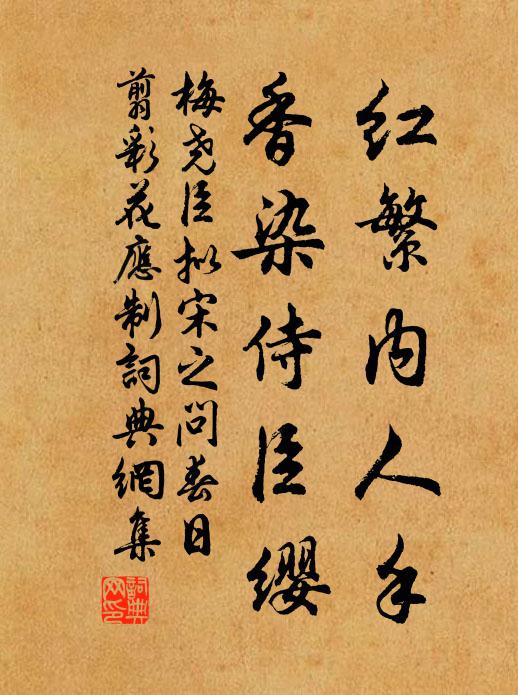 红繁内人手
香染侍臣缨
梅尧臣拟宋之问春日
翦彩花應制詞典網集
詞典网印